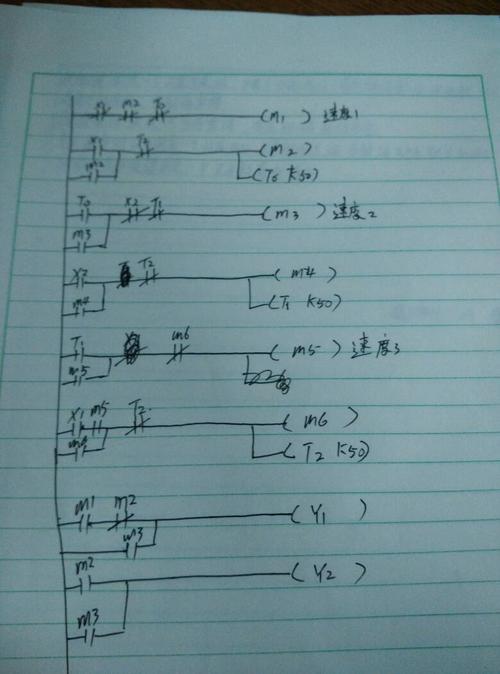 M2 T0 (M1) 速度1
X1 T0 (M2)
M2 (T0 K50)
T0 X2 T1 (M3) 速度2
M3
X2 T2 (M4)
M4 (T1 K50)
T1 M6 (M5) 速度3
M5
X1 M5 T2 (M6)
(T2 K50)
M1 M2 (Y1)
M3
M2 (Y2)
M3